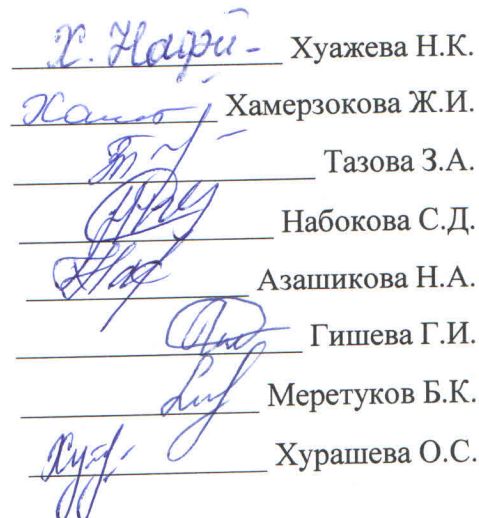 Х. Нафи- Хуажева Н.К.
Хамерзокова Ж.И.
Тазова З.А.
Набокова С.Д.
Азашикова Н.А.
Гишева Г.И.
Меретуков Б.К.
Хурашева О.С.